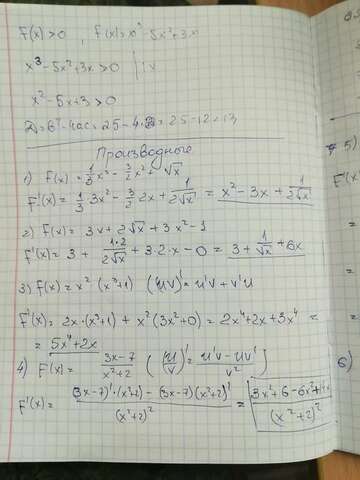 f(x)>0 , f(x)=x³-5x²+3x
x³-5x²+3x>0 | : x
x²-5x+3>0
D=b²-4ac=25-4·3=25-12=13
Производные
1) f(x)=1/3 x³ - 3/2 x² + √x
f'(x)=1/3 3x² - 3/2 2x + 1/(2√x) = x²-3x+1/(2√x)
2) f(x)= 3x+2√x+3x²-1
f'(x)= 3 + (1·2)/(2√x) +3·2·x-0= 3+1/√x+6x
3) f(x)=x² (x³+1) (uv)'=u'v+v'u
f'(x)= 2x·(x³+1) + x²(3x²+0)= 2x⁴+2x+3x⁴ =
= 5x⁴+2x
4) f(x)= (3x-7)/(x²+2) ((u/v)'= (u'v-uv')/v²)
f'(x)= ((3x-7)'·(x²+2)-(3x-7)(x²+2)')/(x²+2)² = (3x²+6-6x²+)/(x²+2)²
5)
f'(x
6)